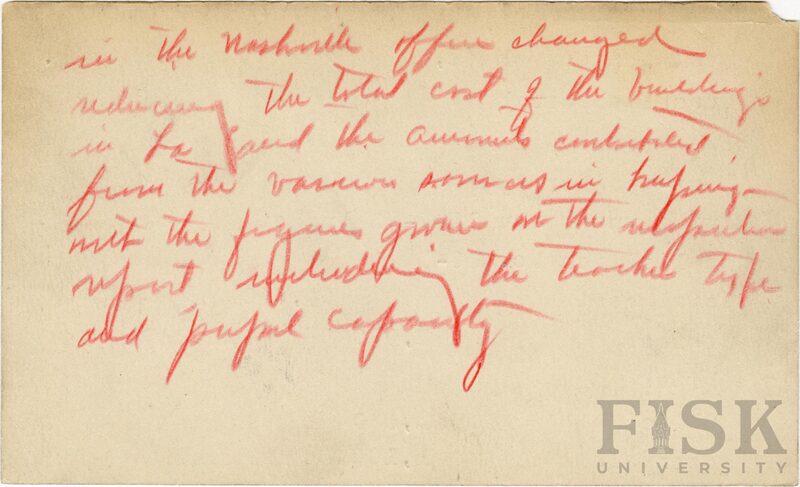 in the Nashville office changed
reducing the total cost of the buildings
in La and the amounts contributed
from the various sources in keeping
with the figures given on the inspection
report including the teacher type
and pupil capacity
FISK
UNIVERSITY